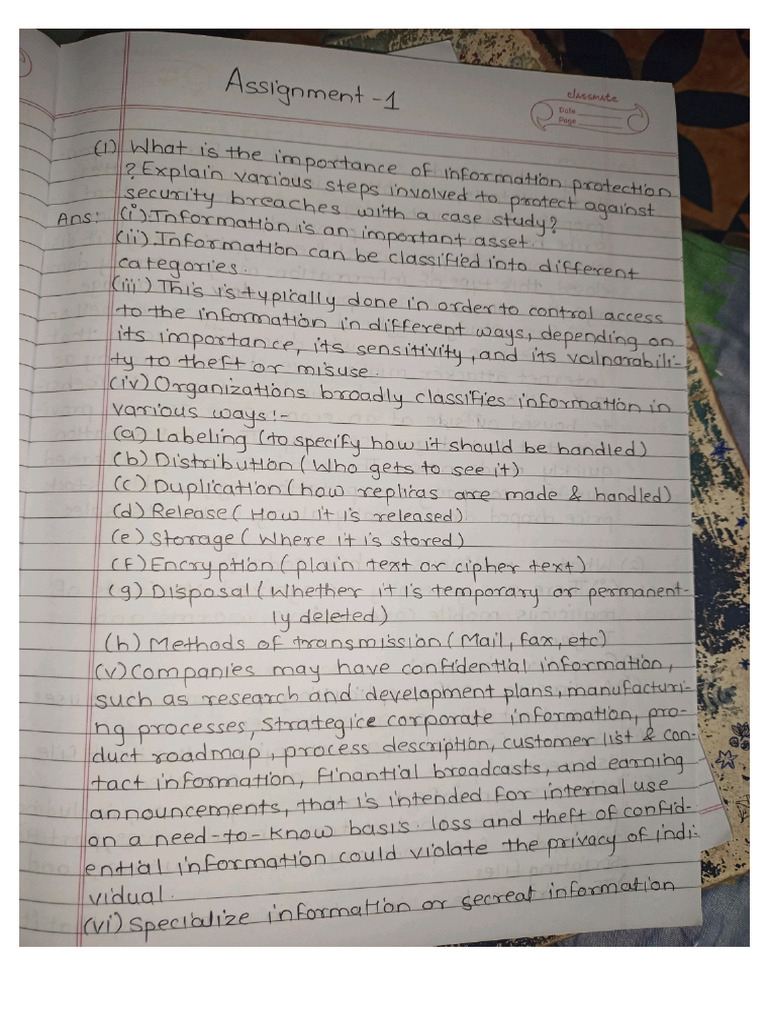 Assignment-1
classmate
Date
Page
(1) What is the importance of information protection
? Explain various steps involved to protect against
security breaches with a case study?
Ans: (i). Information is an important asset.
(ii). Information can be classified into different
categories.
(iii) This is typically done in order to control access
to the information in different ways, depending on
its importance, its sensitivity, and its vulnarabili-
ty to theft or misuse.
(iv) Organizations broadly classifies information in
various ways:-
(a) Labeling (to specify how it should be handled)
(b) Distribution (Who gets to see it)
(c) Duplication (how replicas are made & handled)
(d) Release (How it is released)
(e) Storage (Where it is stored)
(f) Encryption (plain text or cipher text)
(g) Disposal (Whether it is temporary or permanent-
ly deleted)
(h) Methods of transmission (Mail, fax, etc)
(v) Companies may have confidential information,
such as research and development plans, manufacturi-
ng processes, strategice corporate information, pro-
duct roadmap, process description, customer list & con-
tact information, finantial broadcasts, and earning
announcements, that is intended for internal use
on a need-to-know basis. loss and theft of confid-
ential information could violate the privacy of indi-
vidual.
(vi) Specialize information or secreat information